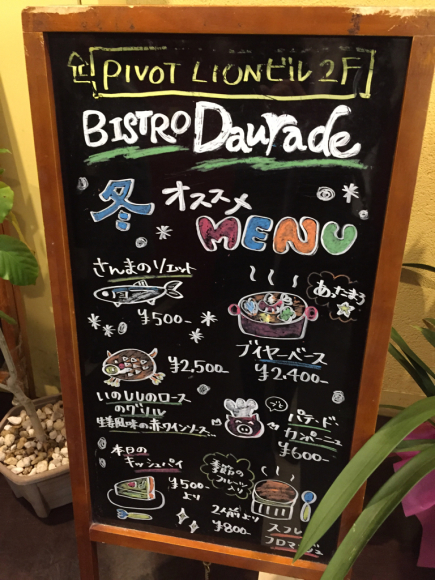 PIVOT LIONビル 2F
BISTRO Daurade
冬 オススメ
MENU
さんまのリエット
¥500-
あったまる
ブイヤーベース
¥2,400-
¥2,500-
いのししのロース
のグリル
生姜風味の赤ワインソース...
パテ・ド
カンパーニュ
¥600-
本日の
キッシュパイ
¥500-
より
季節の
フルーツ
入り
2人前より
¥800-
スフレ
フロマージュ